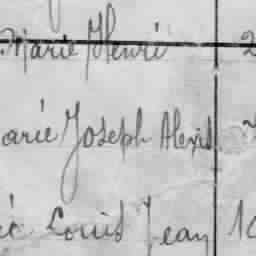 Marie Henri 2
arie Joseph Alexis
Louis Jean 10